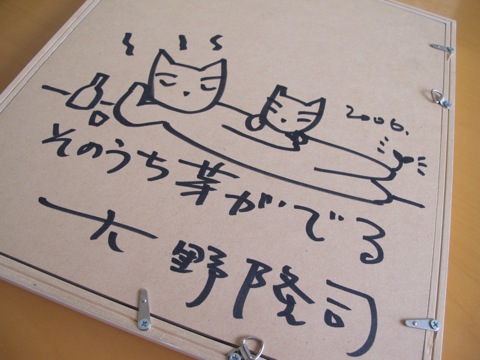 2006.
そのうち芽がでる
大野隆司